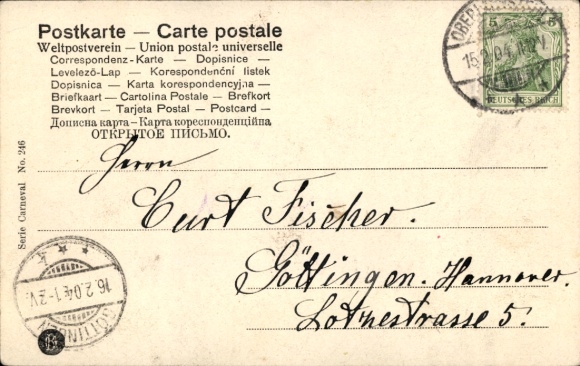 Postkarte — Carte postale
Weltpostverein — Union postale universelle
Correspondenz-Karte — Dopisnice —
Levelező-Lap — Korespondenční lístek
Dopisnica — Karta korespondencyjna —
Briefkaart — Cartolina Postale — Brefkort
Brevkort — Tarjeta Postal — Postcard —
Дописна карта — Карта кореспонденційна
ОТКРЫТОЕ ПИСЬМО.
Serie Carneval No. 246
5 5
DEUTSCHES REICH
15.2.04
Herrn
Curt Fischer.
Göttingen. Hannover.
Lotzestrasse 5.
GÖTTINGEN
16.2.04. 1-2V.